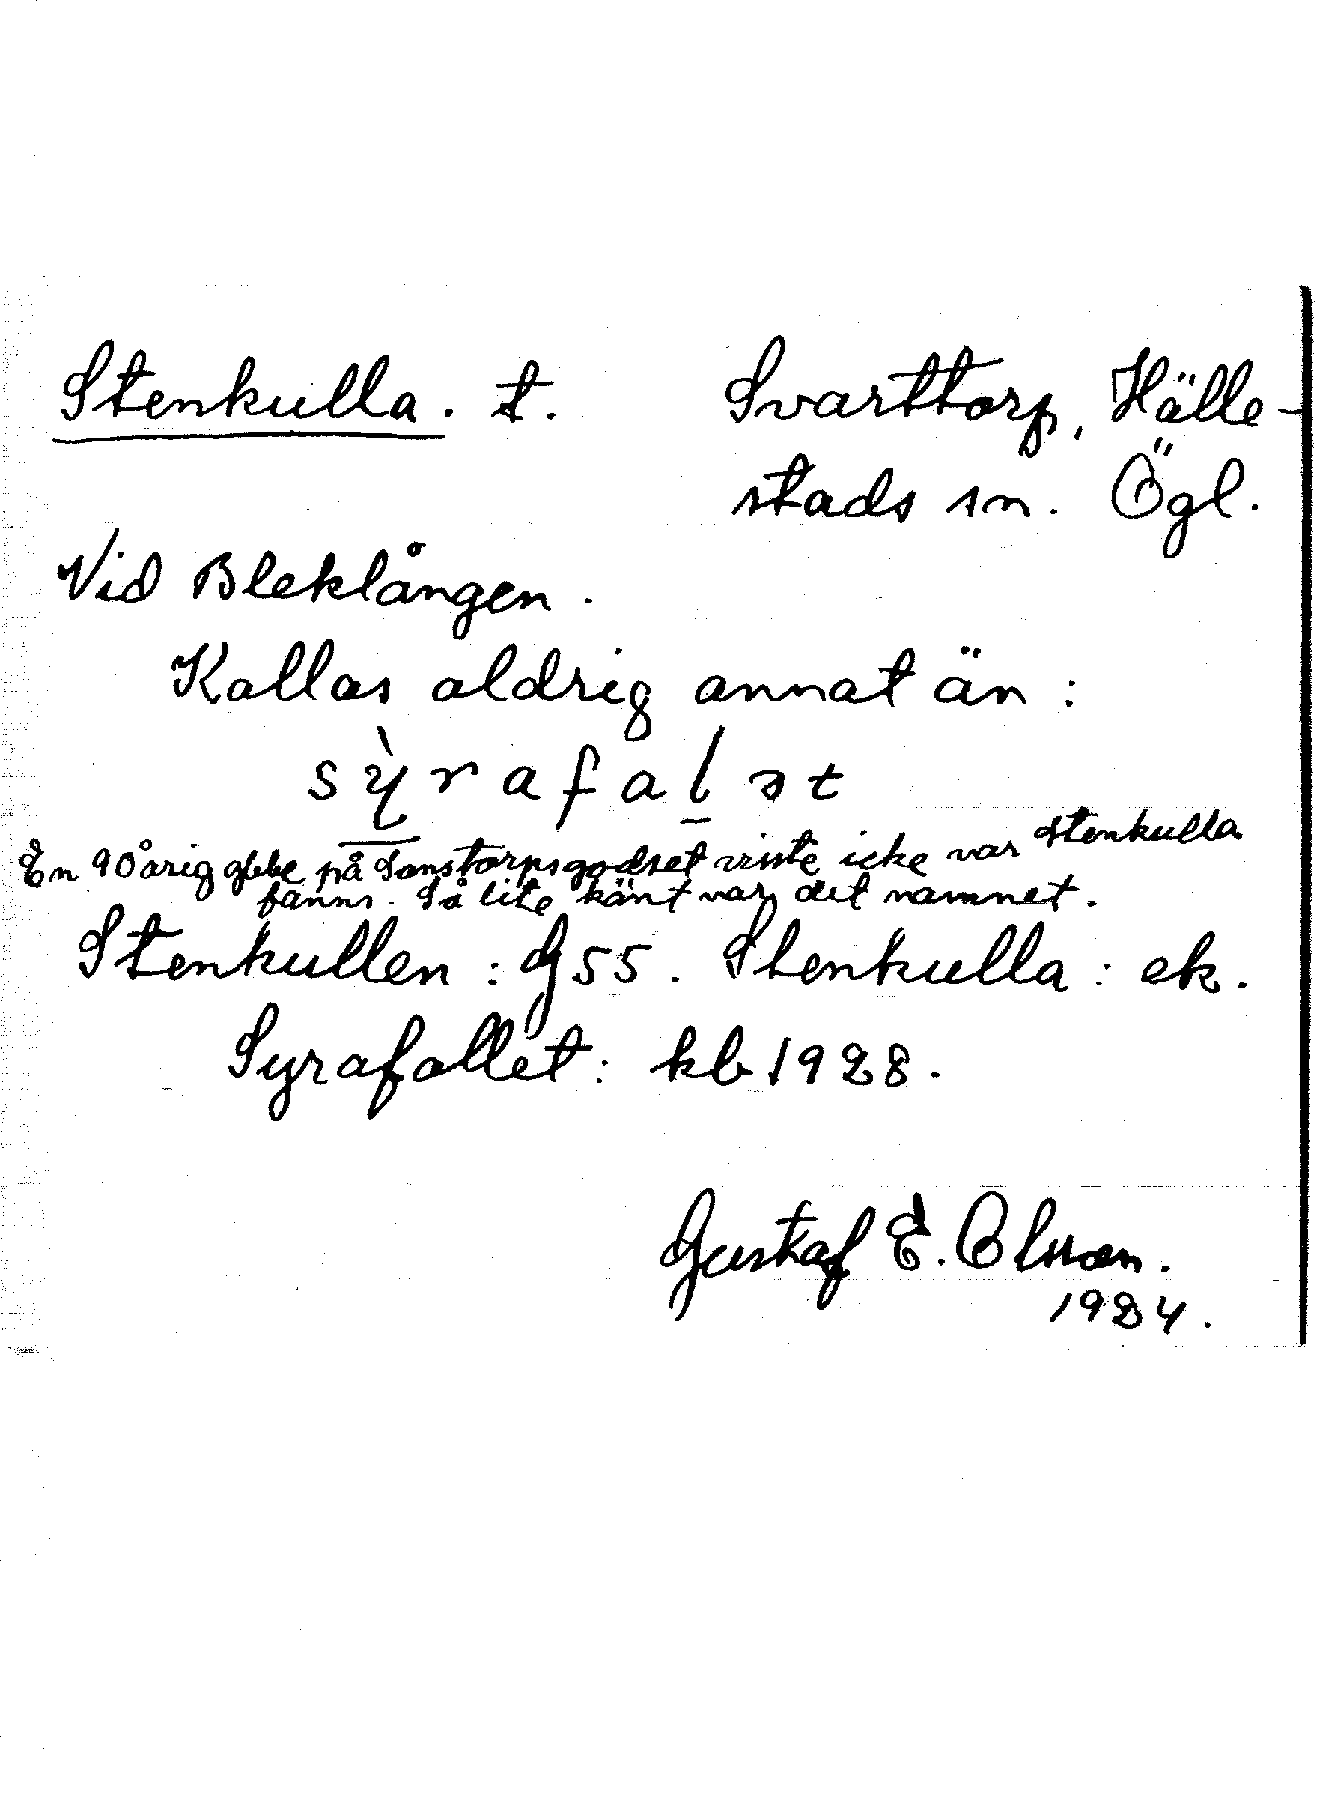 Stenkulla. t. Svarttorp, Hälle-
stads sn. Ögl.
Vid Bleklången.
Kallas aldrig annat än:
sỳrafalst
En 90årig gubbe på Sonstorpsgodset visste icke var Stenkulla
fanns. Så lite känt var det namnet.
Stenkullen: G55. Stenkulla: ek.
Syrafallet: kb 1928.
Gustaf E. Olsson.
1984.